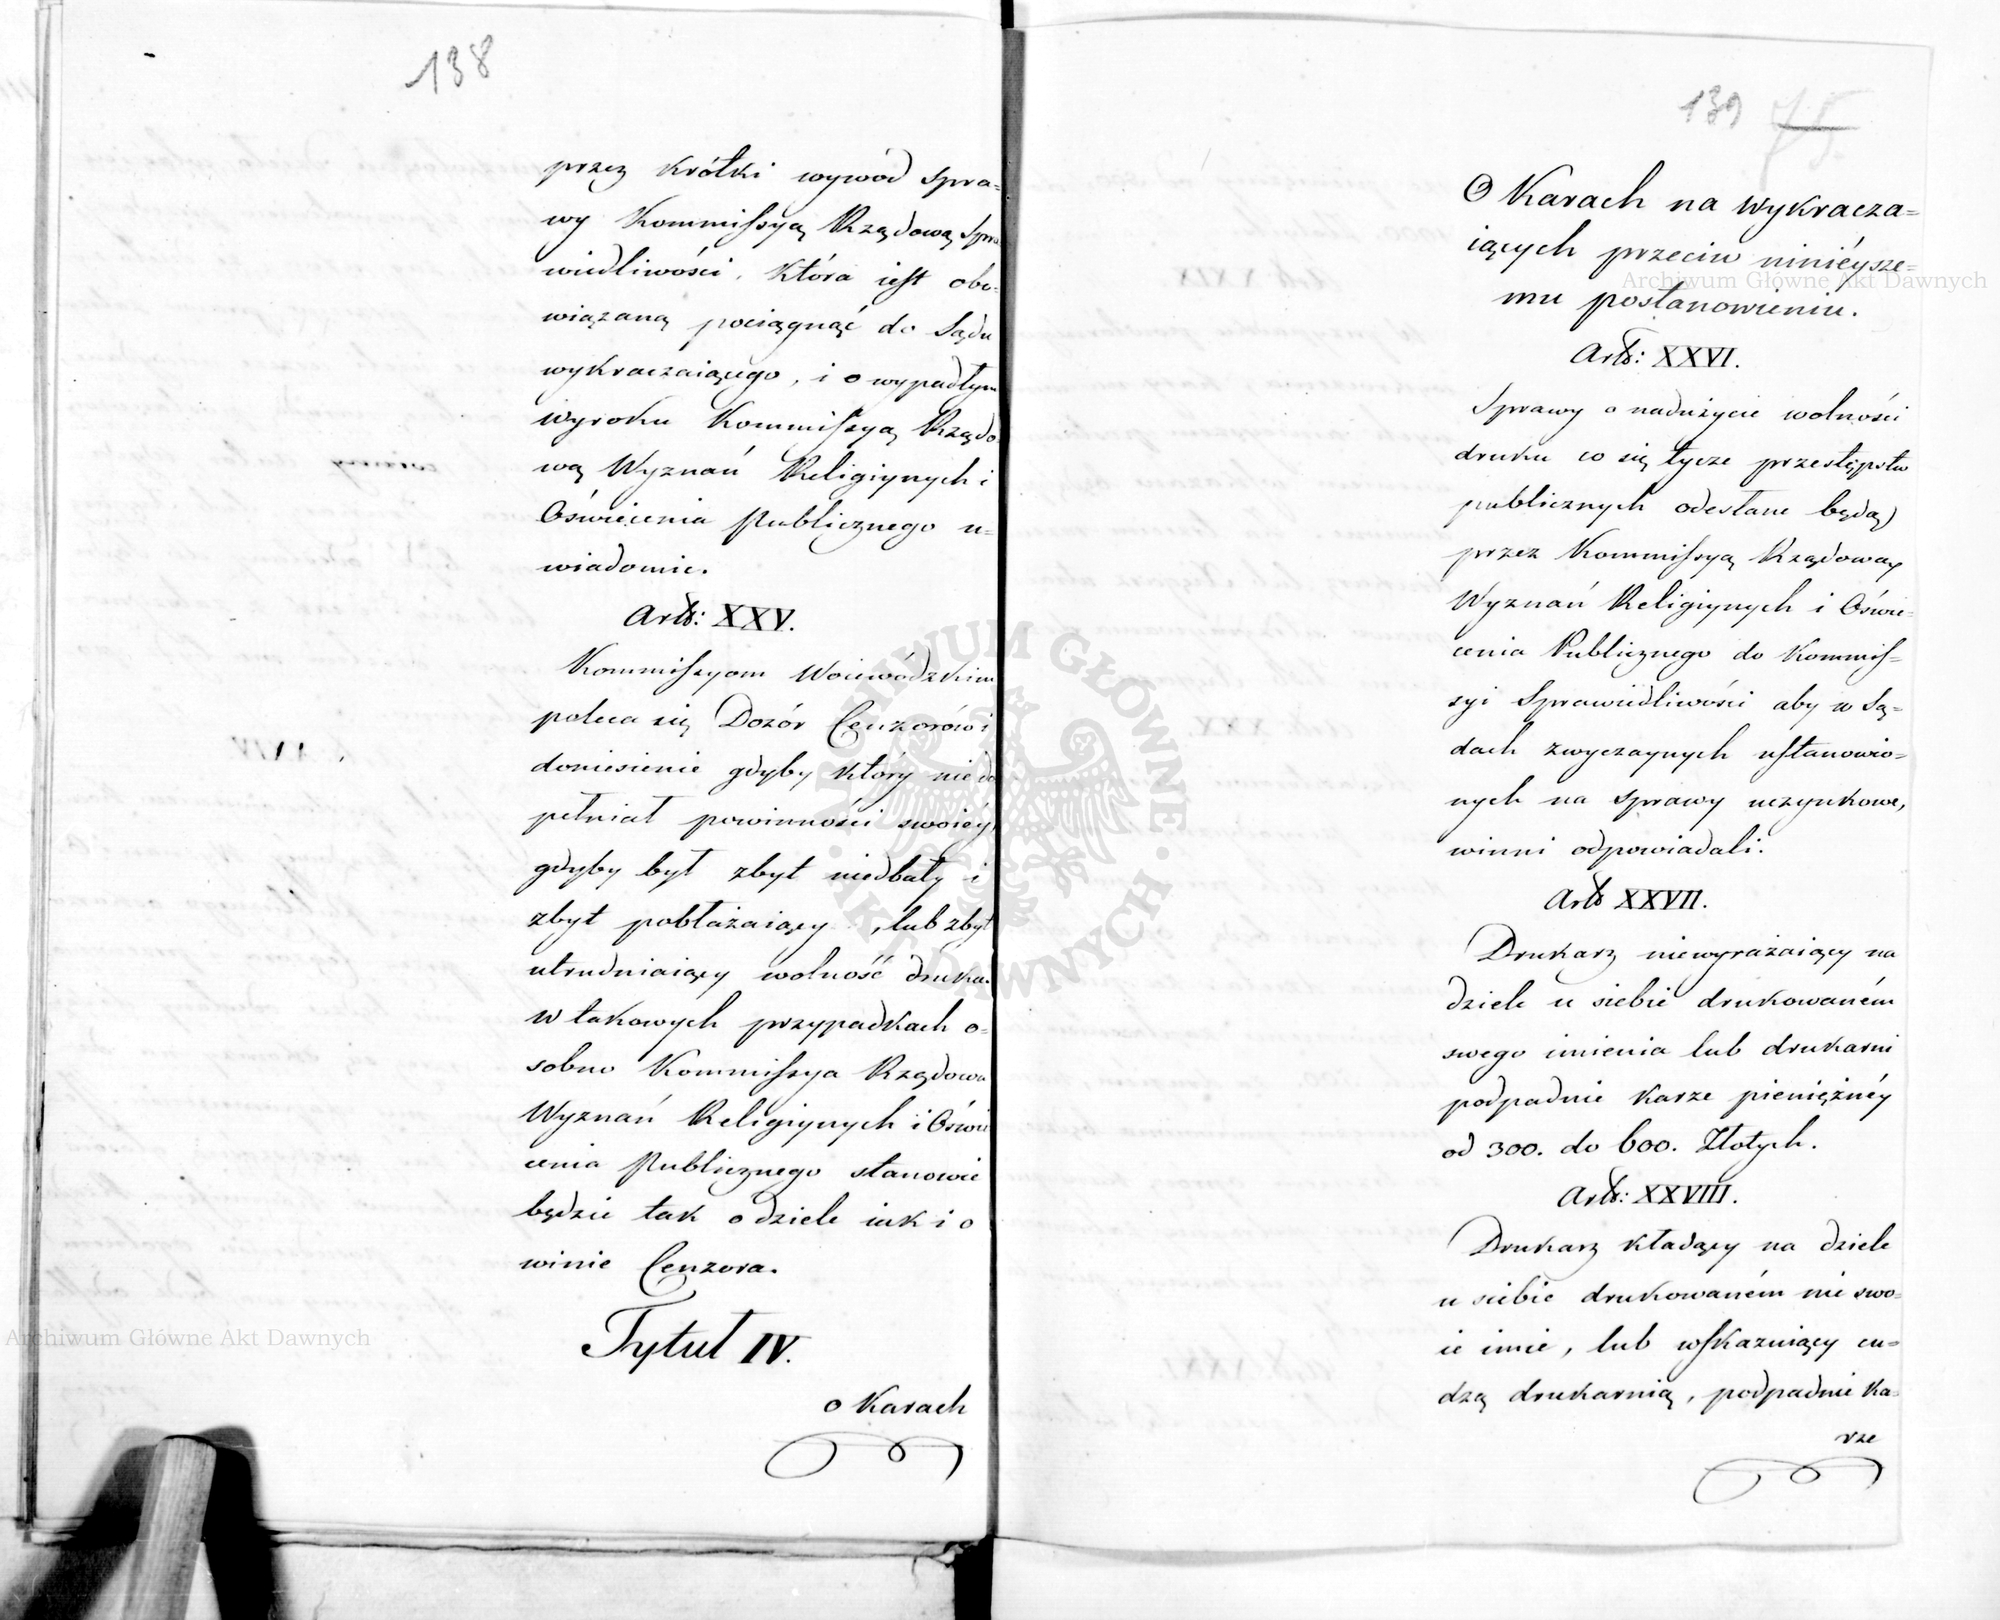 138
przez krótki wywód spra=
wy Kommissyą Rządową Spra
wiedliwości, która iest obo-
wiązaną pociągnąć do Sądu
wykraczaiącego, i o wypadłym
wyroku Kommissyą Rządo
wą Wyznań Religiynych i
Oświecenia Publicznego u=
wiadomić.
Artł: XXV.
Kommissyom Woiewódzkim
poleca się Dozór Cenzorów i
doniesienie gdyby który nie do
pełniał powinności swoiéy,
gdyby był zbyt niedbały i
zbyt pobłażaiący, lub zbyt
utrudniaiący wolność druku.
w takowych przypadkach o=
sobno Kommissya Rządowa
Wyznań Religiynych i Oświe
cenia Publicznego stanowić
będzie tak o dziele iak i o
winie Cenzora.
Tytuł IV.
o Karach
139 75.
O Karach na wykracza=
iących przeciw ninieysze=
mu postanowieniu.
Artł: XXVI.
Sprawy o nadużycie wolności
druku co się tycze przestępstw
publicznych odesłane będą
przez Kommissyą Rządową
Wyznań Religiynych i Oświe-
cenia Publicznego do Kommis=
syi Sprawiedliwości aby w Są=
dach zwyczaynych ustanowio=
nych na sprawy uczynkowe,
winni odpowiadali.
Artł XXVII.
Drukarz niewyrażaiący na
dziele u siebie drukowaném
swego imienia lub drukarni
podpadnie karze pieniężnéy
od 300. do 600. Złotych.
Artł: XXVIII.
Drukarz kładący na dziele
u siebie drukowaném nie swo-
ie imie, lub wskazuiący cu=
dzą drukarnią, podpadnie ka-
rze
Archiwum Główne Akt Dawnych
Archiwum Główne Akt Dawnych
ARCHIWUM GŁÓWNE · AKT DAWNYCH ·